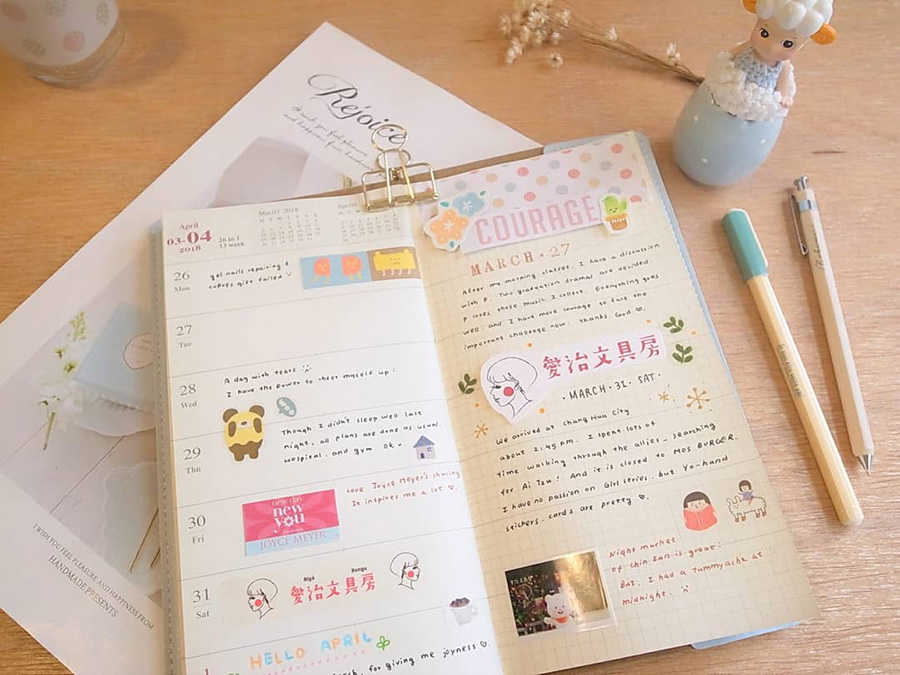 Rejoice
April
03-04
2018
Mar 03 2018
26 Mon
gel nails repairing &
27 Tue
28 Wed
A day with tears
I have the power to cheer myself up!
29 Thu
Though I didn't sleep well last
night, all plans are done as usual.
Hospital. and gym ok
30 Fri
new day
new
you
JOYCE MEYER
Love Joyce Meyer's sharing
It inspires me a lot
31 Sat
愛治文具房
1
HELLO APRIL
for giving me joyness
COURAGE
MARCH . 27
After my morning classes, I have a discussion
with P. Two graduation dramas are decided.
P loves those music I collect. Everything goes
well and I have more courage to face the
important challenge now. Thanks God
愛治文具房
· MARCH. 31. SAT ·
We arrived at Chang Hua City
about 2:45 pm. I spent lots of
time walking through the allies. searching
for Ai Izu! And it is closed to MOS BURGER.
I have no passion on Girl series. but Yo-hand
seichers. cards are pretty
Night market
of Chin Zun is great!
But, I had a tummyache at
midnight.
I WISH YOU FEEL PLEASURE AND HAPPINESS FROM
HANDMADE PRESENTS